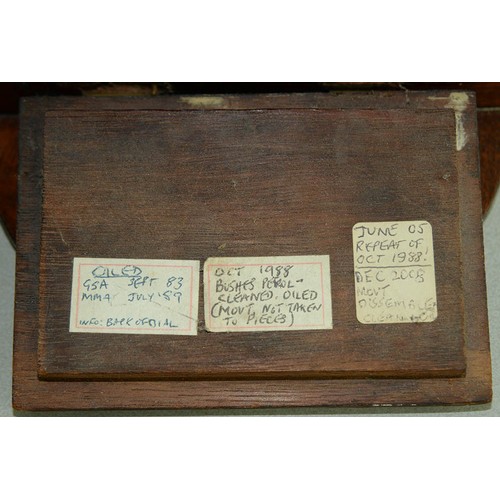 OILED
GSA SEPT 83
MMA JULY '89
INFO: BACK OF DIAL
OCT 1988
BUSHES PETROL-
CLEANED. OILED
(MOVT NOT TAKEN
TO PIECES)
JUNE 05
REPEAT OF
OCT 1988!
DEC 2008
MOVT
CLEANED